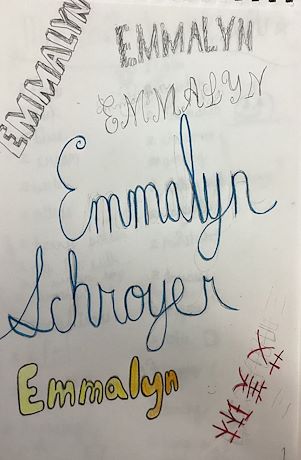 EMMALYN
EMMALYN
EMMALYN
Emmalyn
Schroyer
Emmalyn
1